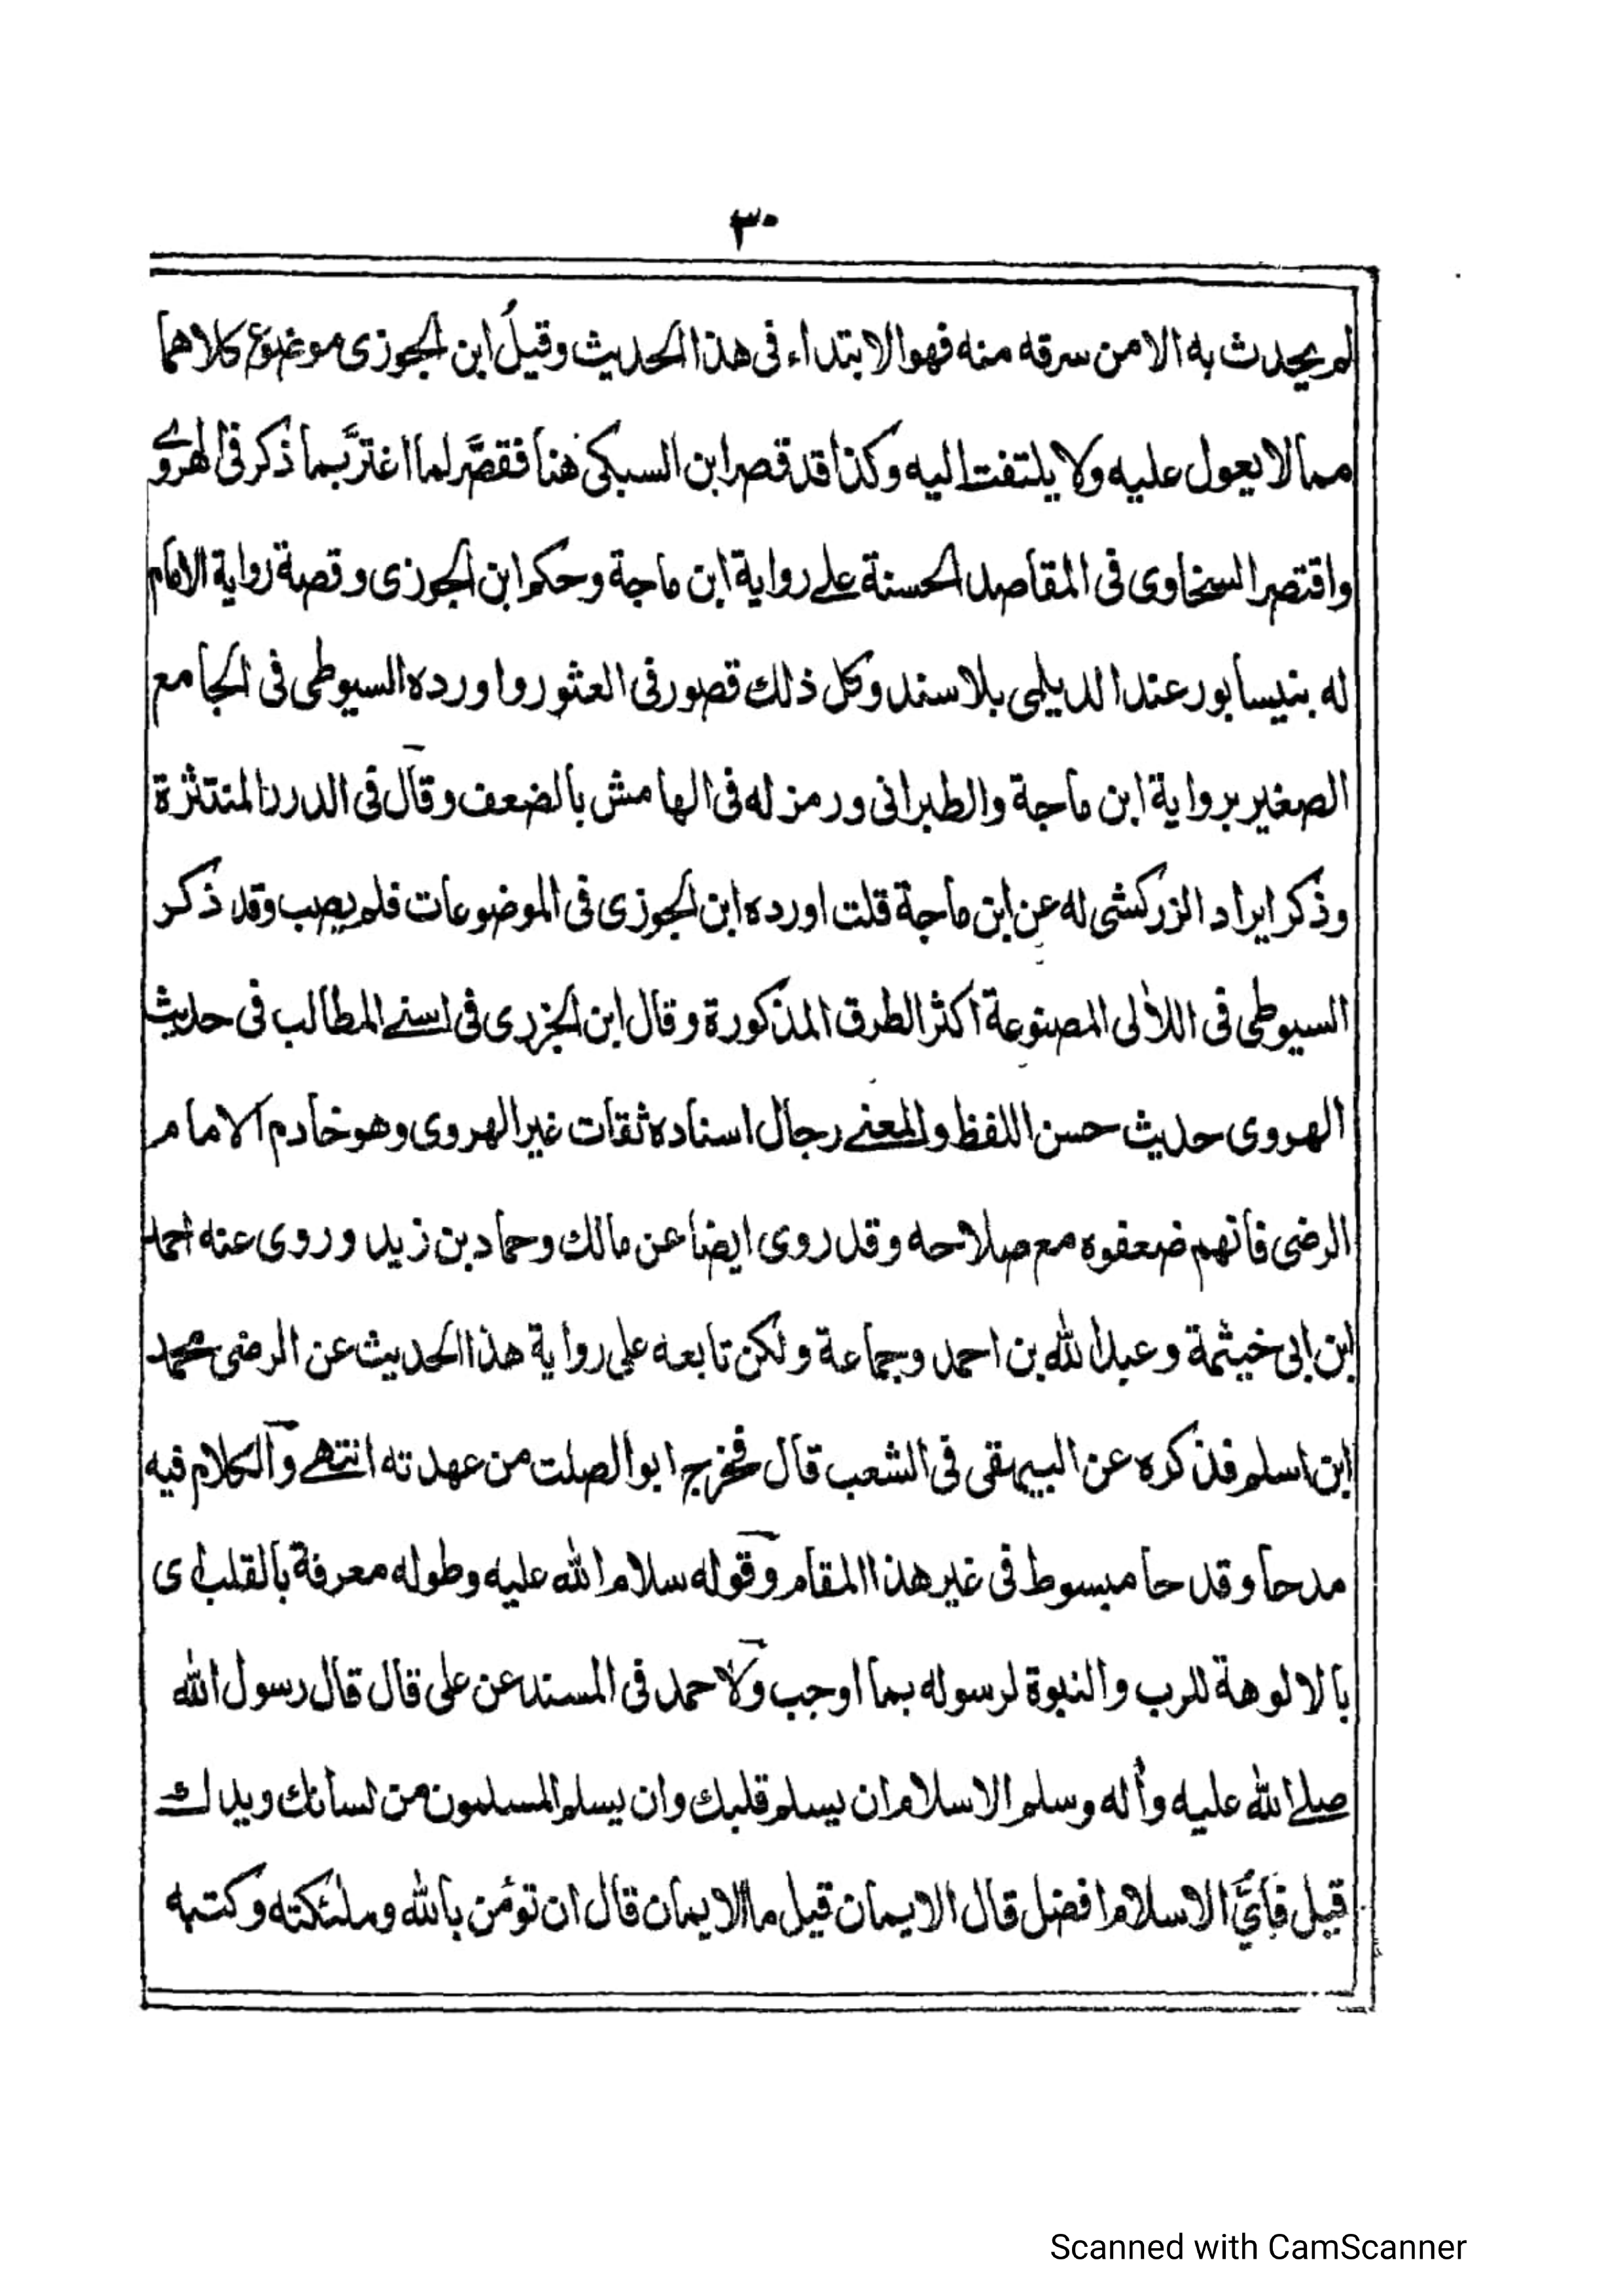 ٣٠
لم يحدث به الا من سرقه منه فهو الابتداء فى هذا الحديث وقيلُ ابن الجوزى موضوع كلاهما
مما لا يعول عليه ولا يلتفت اليه وكذا قد قصر ابن السبكى هنا فقصَّر لما اغترَّ بما ذكر فى الهروى
واقتصر السخاوى فى المقاصد الحسنة على رواية ابن ماجة وحكم ابن الجوزى وقصة رواية الامام
له بنيسابور عند الديلمى بلا سند وكل ذلك قصور فى العثور واورده السيوطى فى الجامع
الصغير برواية ابن ماجة والطبرانى ورمز له فى الهامش بالضعف وقال فى الدرر المنتثرة
وذكر ايراد الزركشى له عن ابن ماجة قلت اورده ابن الجوزى فى الموضوعات فلم يصب وقد ذكر
السيوطى فى اللاٰلى المصنوعة اكثر الطرق المذكورة وقال ابن الجزرى فى اسنے المطالب فى حديث
الهروى حديث حسن اللفظ والمعنے رجال اسناده ثقات غير الهروى وهو خادم الامام
الرضى فانهم ضعفوه مع صلاحه وقد روى ايضا عن مالك وحماد بن زيد وروى عنه احمد
ابن ابى خيثمة وعبد الله بن احمد وجماعة ولكن تابعه على رواية هذا الحديث عن الرضى محمد
ابن اسلم فذكره عن البيهقى فى الشعب قال فخرج ابو الصلت من عهدته انتهے والكلام فيه
مدحا وقدحا مبسوط فى غير هذا المقام وقوله سلام الله عليه وطوله معرفة بالقلب اى
بالالوهة للرب والنبوة لرسوله بما اوجب ولاحمد فى المسند عن على قال قال رسول الله
صلے الله عليه وأله وسلم الاسلام ان يسلم قلبك وان يسلم المسلمون من لسانك ويدك
قيل فأىُّ الاسلام افضل قال الايمان قيل ما الايمان قال ان تؤمن بالله وملئكته وكتبه
Scanned with CamScanner